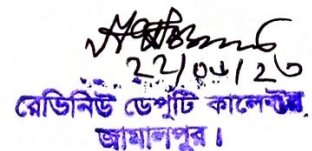 ২২/০৬/২৩
রেভিনিউ ডেপুটি কালেক্টর,
জামালপুর।